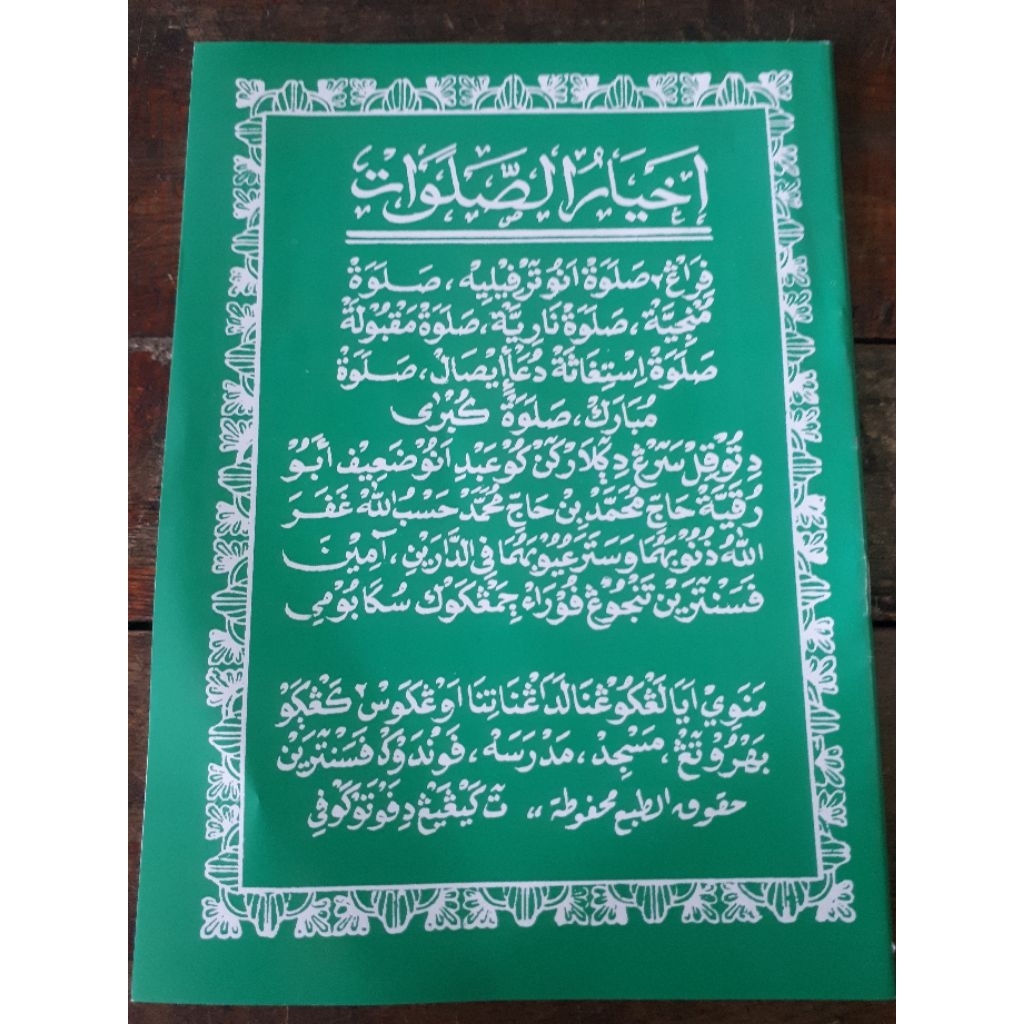 إَخْيَارُ الصَّلَوَاتْ
فِرَاڠْ٢ صَلَوَةْ اَنُو تَرْفِيلِيهْ، صَلَوَةْ
مُنْجِيَّةْ، صَلَوَةْ نَارِيَّةْ، صَلَوَةْ مَقْبُولَةْ
صَلَوَةْ اِسْتِغَاثَةْ دُعَاءْ اِيْصَالْ، صَلَوَةْ
مُبَارَكْ، صَلَوَةْ كُبْرٰى
دِتُوْقِلْ سَرَڠْ دِڮْلَارْكَنْ كُوْ عَبْدِ اَنُوْ ضَعِيْف أَبُوْ
رُقَيَّةْ حَاجْ مُحَمَّدْ بِنْ حَاجْ مُحَمَّدْ حَسْبُ اللهْ غَفَرَ
اللهُ ذُنُوْبَهُمَا وَسَتَرَ عُيُوْبَهُمَا فِى الدَّارَيْنِ، آمِيْنَ
فَسَنْتْرَيْنْ تَنْجُوْڠْ فُوْرَاءْ جِمَڠْكَوْكْ سُكَابُوْمِي
مَنَوِيْ اَيَا لَڠْكُوْڠْنَا لَدَاڠْنَا تِتْنَا اَوْڠْكَوْسْ كَڠْڮَوْ
مَسْجِدْ، مَدْرَسَهْ، فَوْنْدَوْكْ فَسَنْتْرَيْنْ
حقوق الطبع محفوظة ,, تَ كَيْڠِيْڠْ دِفَوْتَوْكَوْفِي